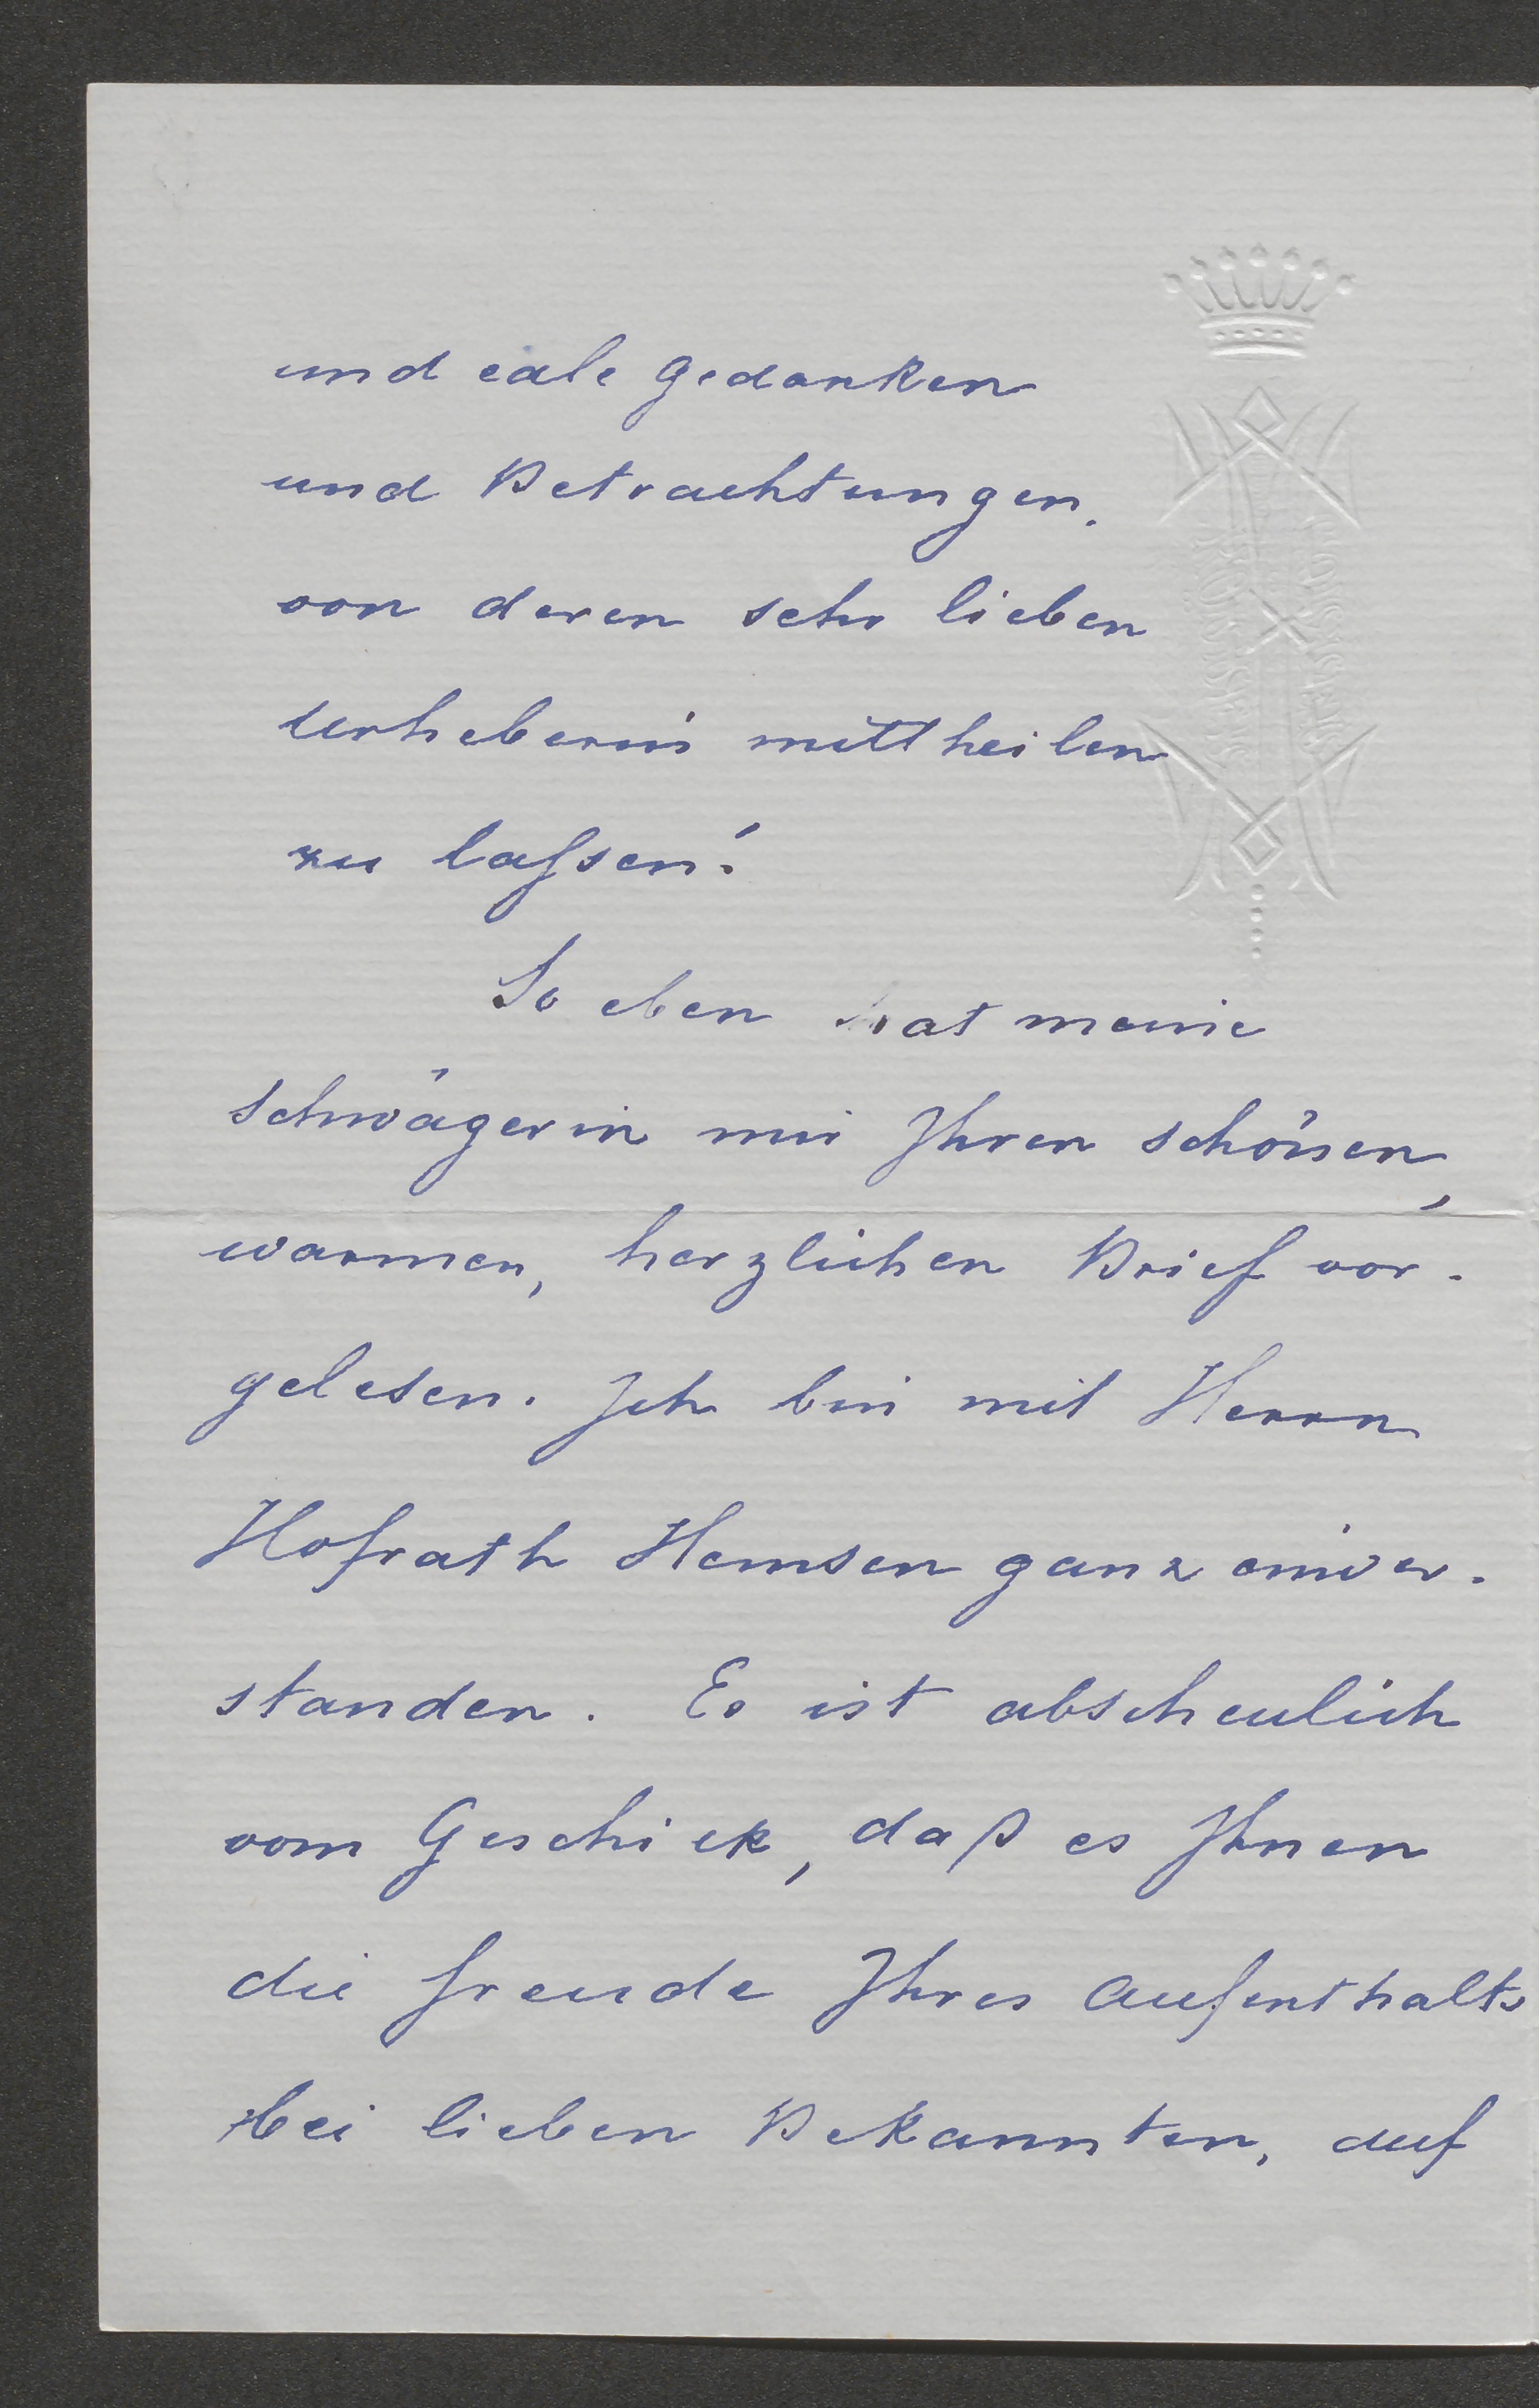 und edle Gedanken
und Betrachtungen,
von deren sehr lieben
Urheberin mittheilen
zu laſsen!
So eben hat meine
Schwägerin mir Ihren schönen,
warmen, herzlichen Brief vor-
gelesen. Ich bin mit Herrn
Hofrath Hemsen ganz einver-
standen. Es ist abscheulich
vom Geschick, daß es Ihnen
die Freude Ihres Aufenthalts
bei lieben Bekannten, auf